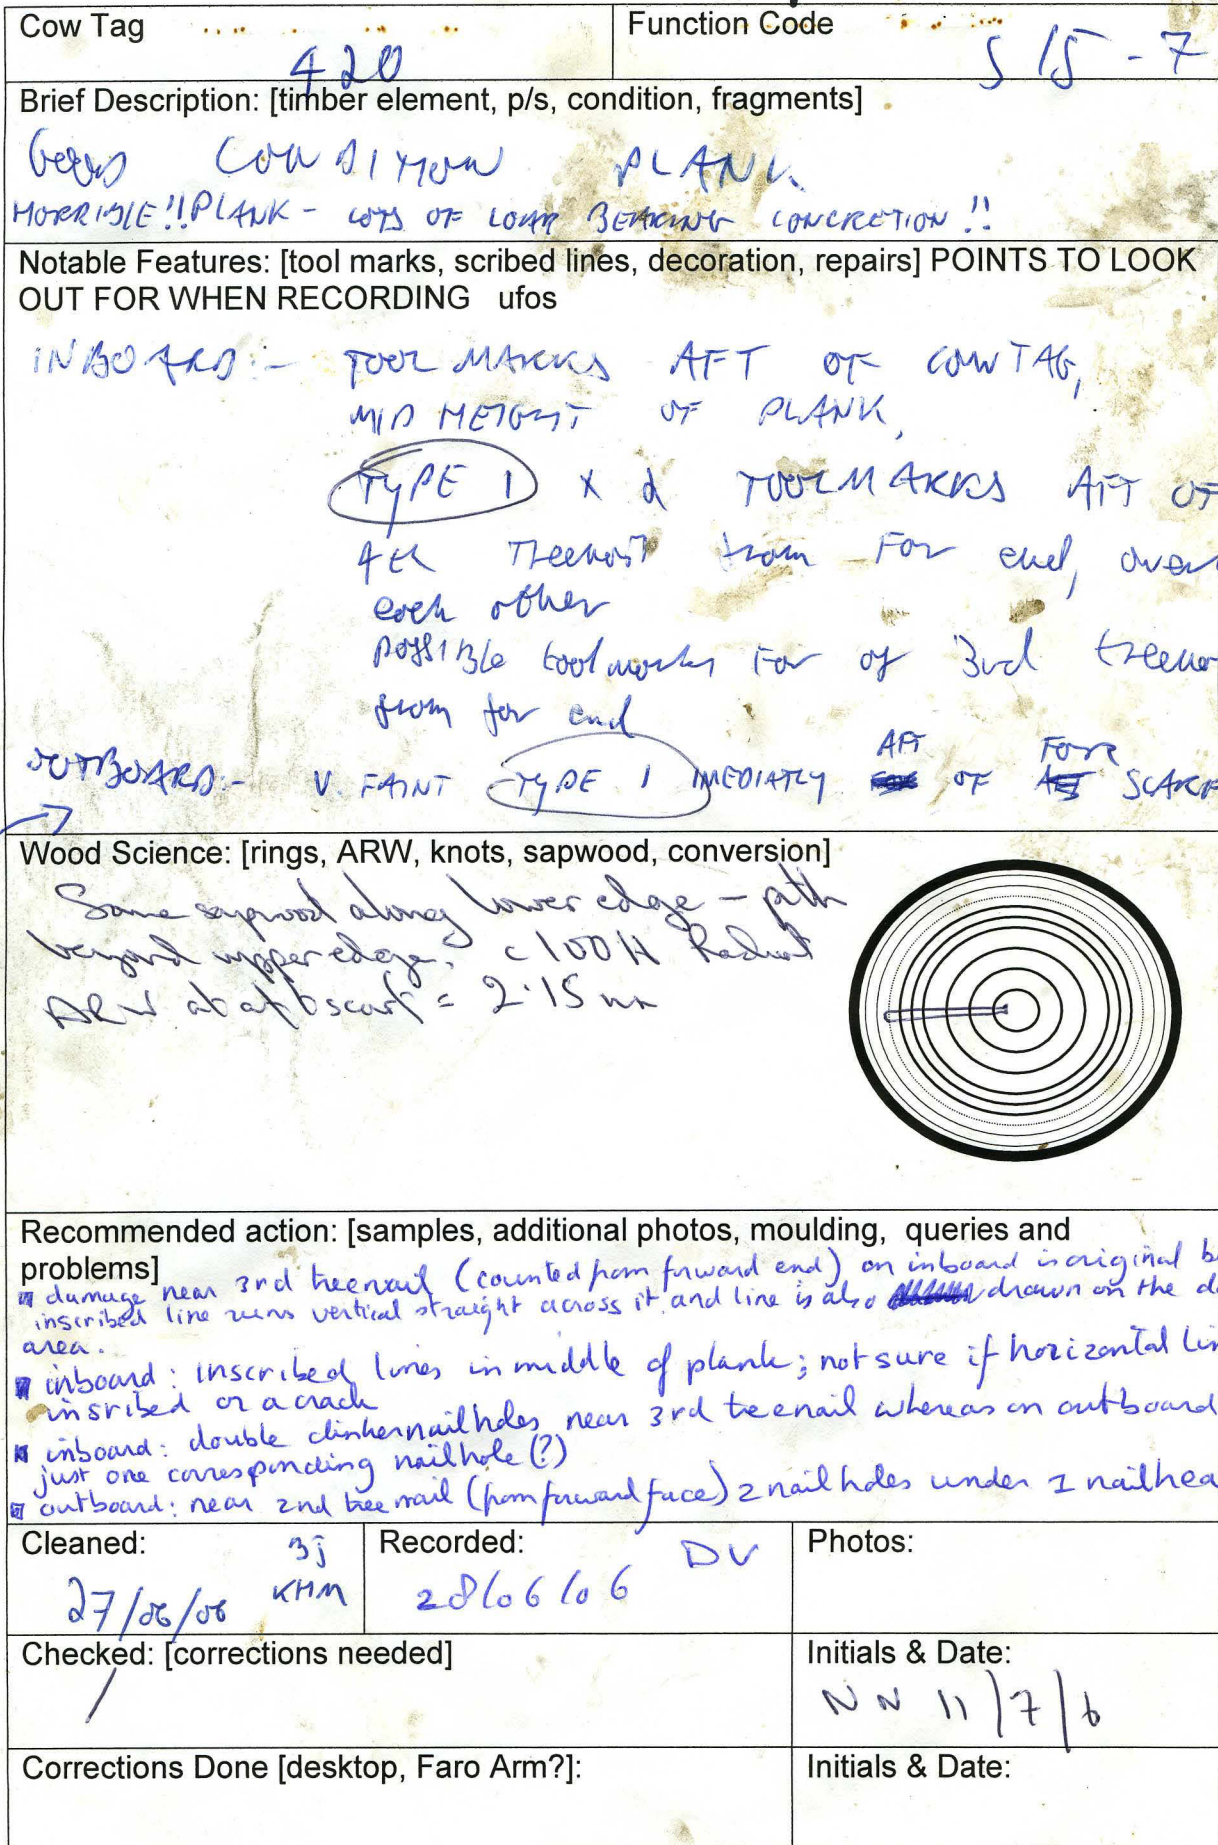 Cow Tag
420
Function Code
S 15 - 7
Brief Description: [timber element, p/s, condition, fragments]
GOOD CONDITION PLANK
HORRIBLE!! PLANK - LOTS OF LOAR BEARING CONCRETION!!
Notable Features: [tool marks, scribed lines, decoration, repairs] POINTS TO LOOK
OUT FOR WHEN RECORDING ufos
INBOARD:- TOOL MARKS AFT OF COW TAG,
MID HEIGHT OF PLANK,
TYPE 1 x 2 TOOLMARKS AFT OF
4th Treenail from For end, over
each other
possible toolmarks For of 3rd treena
from for end
OUTBOARD:- V. FAINT TYPE 1 IMEDIATLY AFT OF FORE SCARF
Wood Science: [rings, ARW, knots, sapwood, conversion]
Some sapwood along lower edge - pith
beyond upper edge. c 100 Radial
ARW at aft scarf = 2.15 mm
Recommended action: [samples, additional photos, moulding, queries and
problems]
damage near 3rd treenail (counted from forward end) on inboard is original b
inscribed line runs vertical straight across it and line is also drawn on the d
area.
inboard: inscribed lines in middle of plank; not sure if horizontal lin
insribed or a crack
inboard: double clinkernailholes near 3rd treenail whereas on outboard
just one corresponding nailhole (?)
outboard: near 2nd treenail (from forward face) 2 nailholes under 1 nailhea
Cleaned: 3j
27/06/06 KHM
Recorded: DV
28/06/06
Photos:
Checked: [corrections needed]
/
Initials & Date:
NN 11/7/6
Corrections Done [desktop, Faro Arm?]:
Initials & Date: